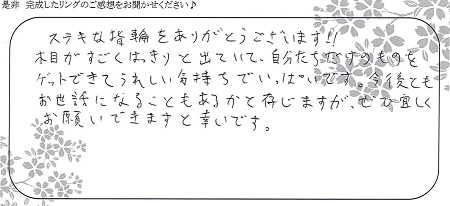 是非 完成したリングのご感想をお聞かせください♪
ステキな指輪をありがとうございます!!
木目がすごくはっきりと出ていて、自分たちだけのものを
ゲットできてうれしい気持ちでいっぱいです。今後とも
お世話になることもあるかと存じますが、ぜひ宜しく
お願いできますと幸いです。